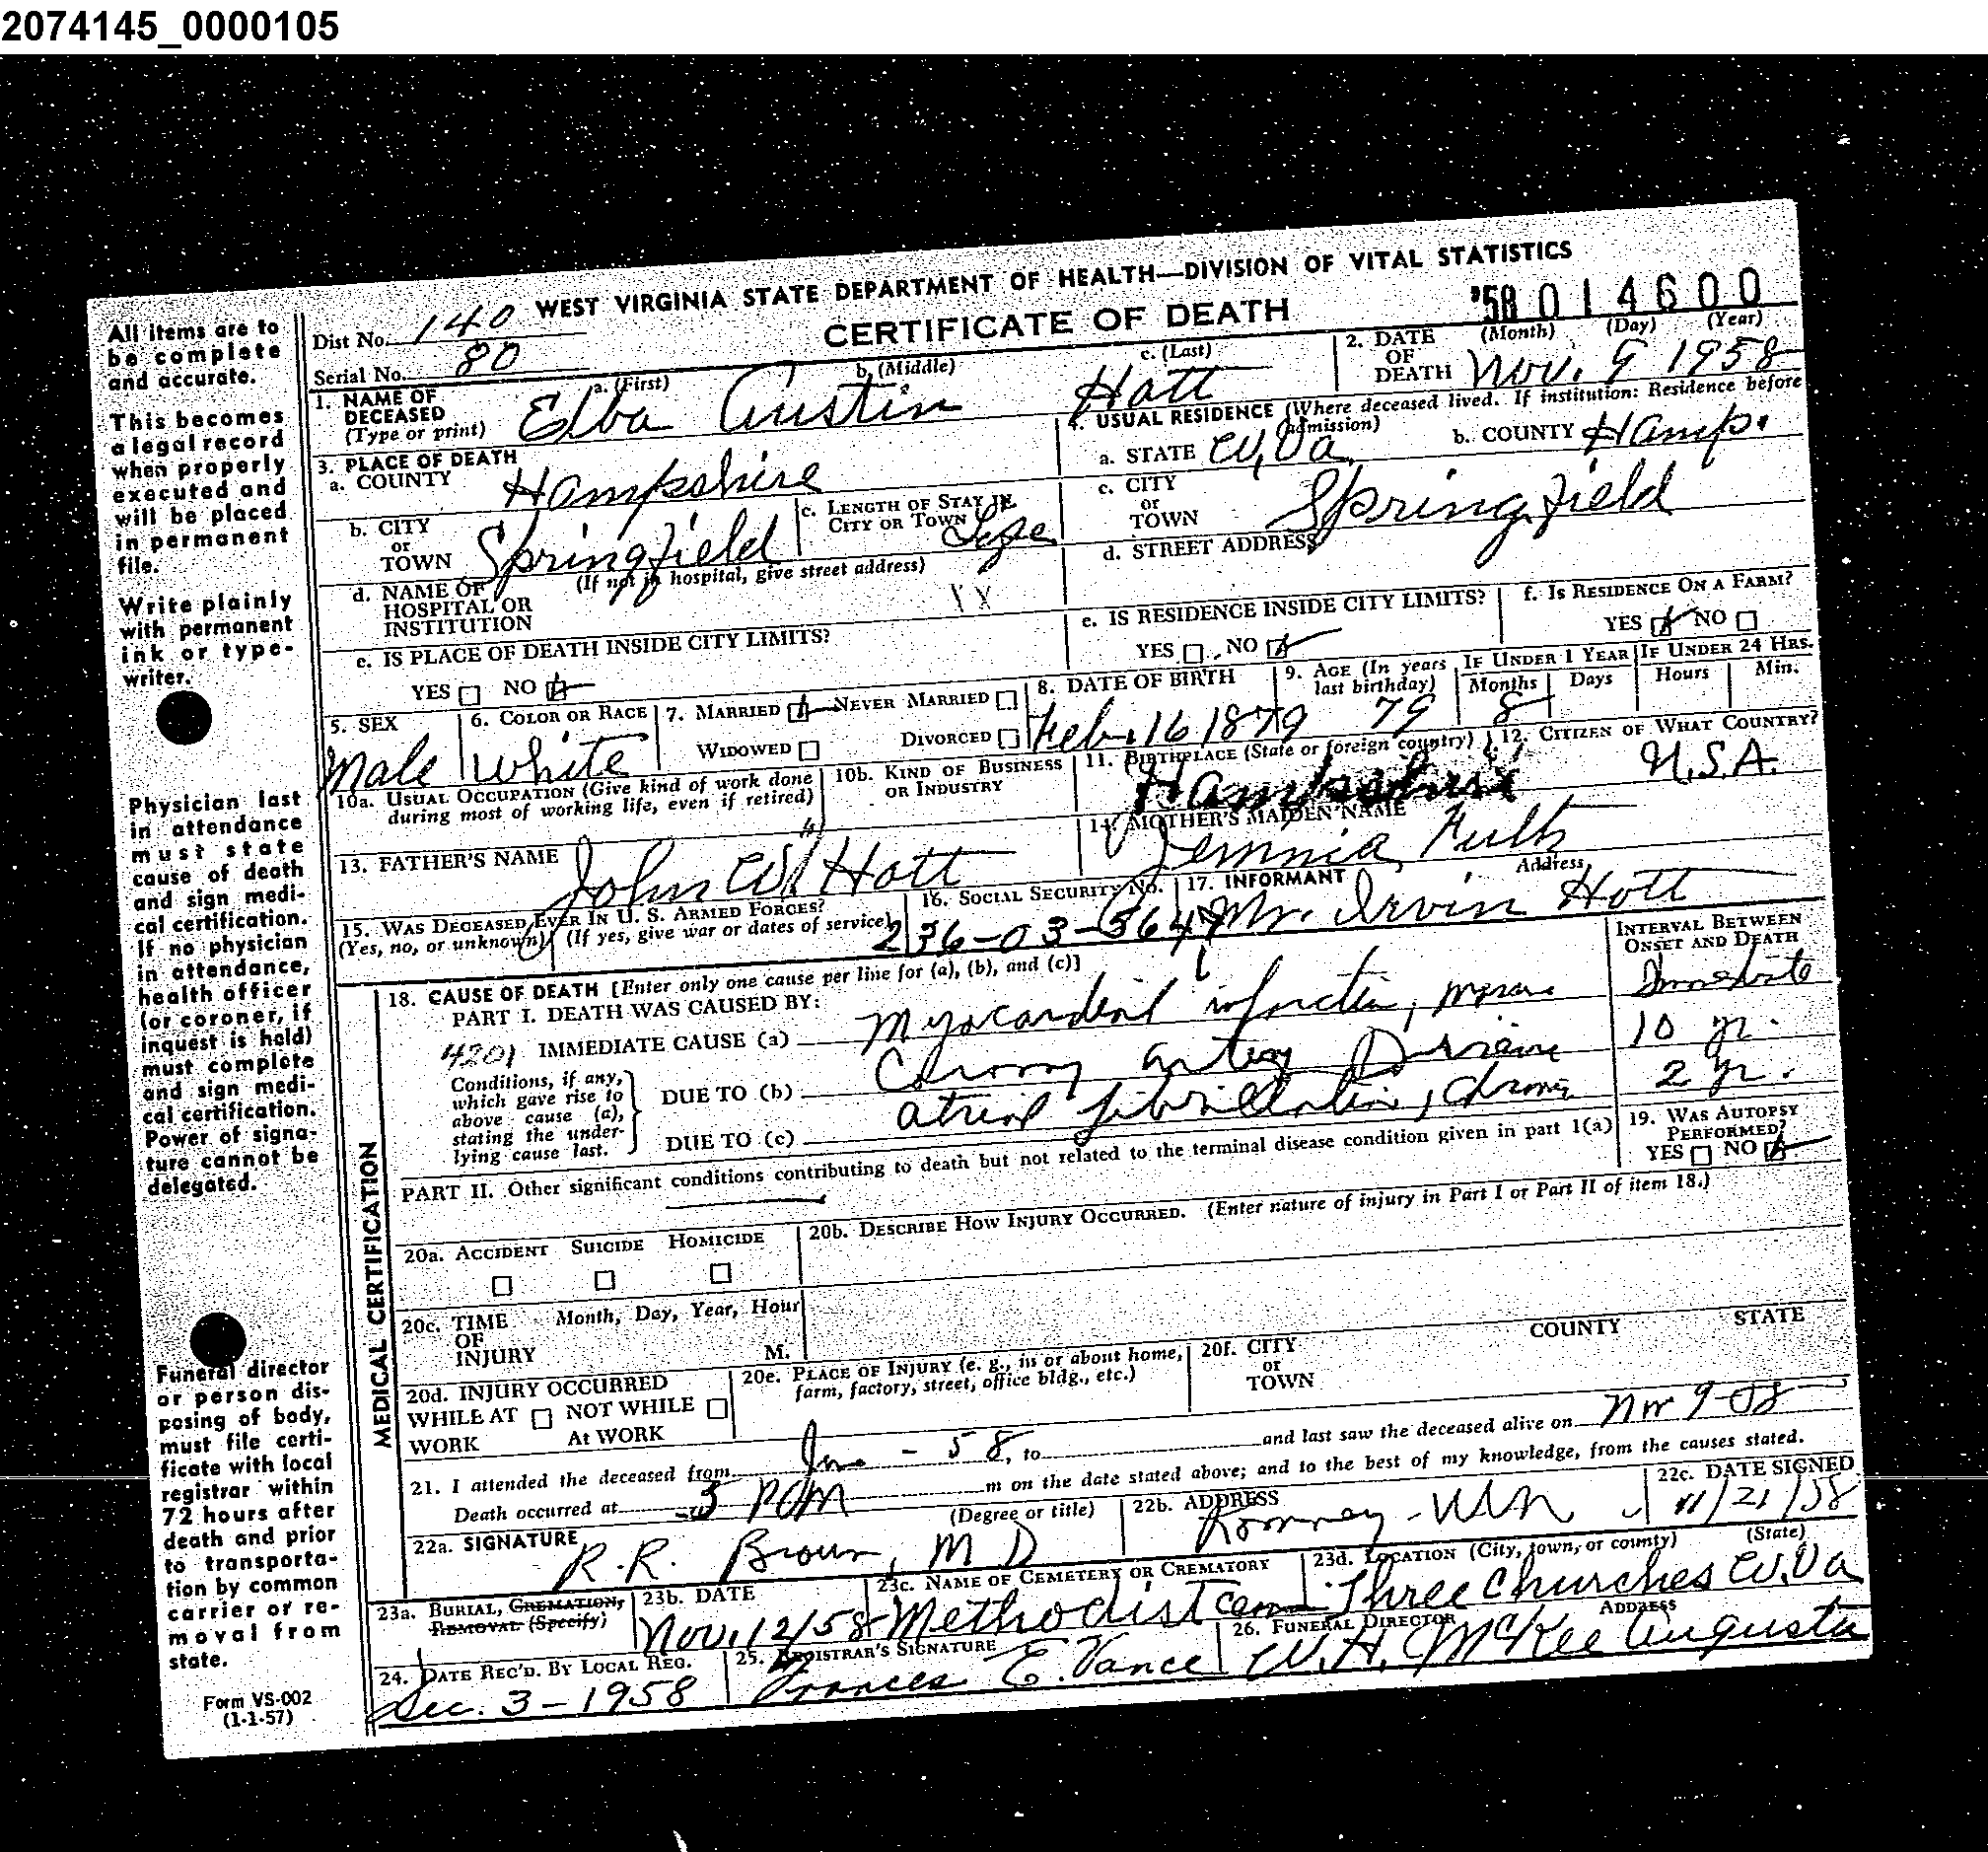 2074145_0000105
WEST VIRGINIA STATE DEPARTMENT OF HEALTH—DIVISION OF VITAL STATISTICS
CERTIFICATE OF DEATH
'58 014600
Dist No. 140
Serial No. 80
1. NAME OF DECEASED (Type or print)
a. (First) b. (Middle) c. (Last)
Elba Austin Hott
2. DATE OF DEATH (Month) (Day) (Year)
Nov. 9 1958
3. PLACE OF DEATH
a. COUNTY Hampshire
b. CITY or TOWN Springfield
c. LENGTH OF STAY IN CITY OR TOWN Life
d. NAME OF HOSPITAL OR INSTITUTION (If not in hospital, give street address)
e. IS PLACE OF DEATH INSIDE CITY LIMITS?
YES NO
4. USUAL RESIDENCE (Where deceased lived. If institution: Residence before admission)
a. STATE W.Va. b. COUNTY Hamp.
c. CITY or TOWN Springfield
d. STREET ADDRESS
e. IS RESIDENCE INSIDE CITY LIMITS?
YES NO
f. IS RESIDENCE ON A FARM?
YES NO
5. SEX Male
6. COLOR OR RACE White
7. MARRIED NEVER MARRIED
WIDOWED DIVORCED
8. DATE OF BIRTH Feb. 16 1879
9. AGE (In years last birthday) 79
IF UNDER 1 YEAR Months Days 8
IF UNDER 24 HRS. Hours Min.
10a. USUAL OCCUPATION (Give kind of work done during most of working life, even if retired)
10b. KIND OF BUSINESS OR INDUSTRY
11. BIRTHPLACE (State or foreign country) Hampshire
12. CITIZEN OF WHAT COUNTRY? U.S.A.
13. FATHER'S NAME John W. Hott
14. MOTHER'S MAIDEN NAME Jemmia
15. WAS DECEASED EVER IN U. S. ARMED FORCES?
(Yes, no, or unknown) (If yes, give war or dates of service)
16. SOCIAL SECURITY NO.
17. INFORMANT Address
Mr. Irvin Hott
MEDICAL CERTIFICATION
18. CAUSE OF DEATH [Enter only one cause per line for (a), (b), and (c)]
INTERVAL BETWEEN ONSET AND DEATH
PART I. DEATH WAS CAUSED BY:
4201 IMMEDIATE CAUSE (a) Myocardial infarction, Immediate
Conditions, if any, which gave rise to above cause (a), stating the underlying cause last.
DUE TO (b) Coronary artery Disease 10 yr.
DUE TO (c) atrial fibrillation, chronic 2 yr.
PART II. Other significant conditions contributing to death but not related to the terminal disease condition given in part 1(a)
19. WAS AUTOPSY PERFORMED?
YES NO
20a. ACCIDENT SUICIDE HOMICIDE
20b. DESCRIBE HOW INJURY OCCURRED. (Enter nature of injury in Part I or Part II of item 18.)
20c. TIME OF INJURY Month, Day, Year, Hour M.
20d. INJURY OCCURRED
WHILE AT WORK NOT WHILE At WORK
20e. PLACE OF INJURY (e. g., in or about home, farm, factory, street, office bldg., etc.)
20f. CITY or TOWN COUNTY STATE
21. I attended the deceased from - 58, to and last saw the deceased alive on Nov 9-58
Death occurred at 3 PM m on the date stated above; and to the best of my knowledge, from the causes stated.
22a. SIGNATURE (Degree or title)
R. R. Brown, MD
22b. ADDRESS Romney - W Va
22c. DATE SIGNED 11/21/58
23a. BURIAL, CREMATION, REMOVAL (Specify)
23b. DATE Nov. 12/58
23c. NAME OF CEMETERY OR CREMATORY Methodist Cem
23d. LOCATION (City, town, or county) (State)
Three Churches W.Va
24. DATE REC'D. BY LOCAL REG. Dec. 3-1958
25. REGISTRAR'S SIGNATURE Frances E. Vance
26. FUNERAL DIRECTOR ADDRESS
W. H. McKee Augusta
All items are to
be complete
and accurate.
This becomes
a legal record
when properly
executed and
will be placed
in permanent
file.
Write plainly
with permanent
ink or type-
writer.
Physician last
in attendance
must state
cause of death
and sign medi-
cal certification.
If no physician
in attendance,
health officer
(or coroner, if
inquest is held)
must complete
and sign medi-
cal certification.
Power of signa-
ture cannot be
delegated.
Funeral director
or person dis-
posing of body,
must file certi-
ficate with local
registrar within
72 hours after
death and prior
to transporta-
tion by common
carrier or re-
moval from
state.
Form VS-002
(1-1-57)